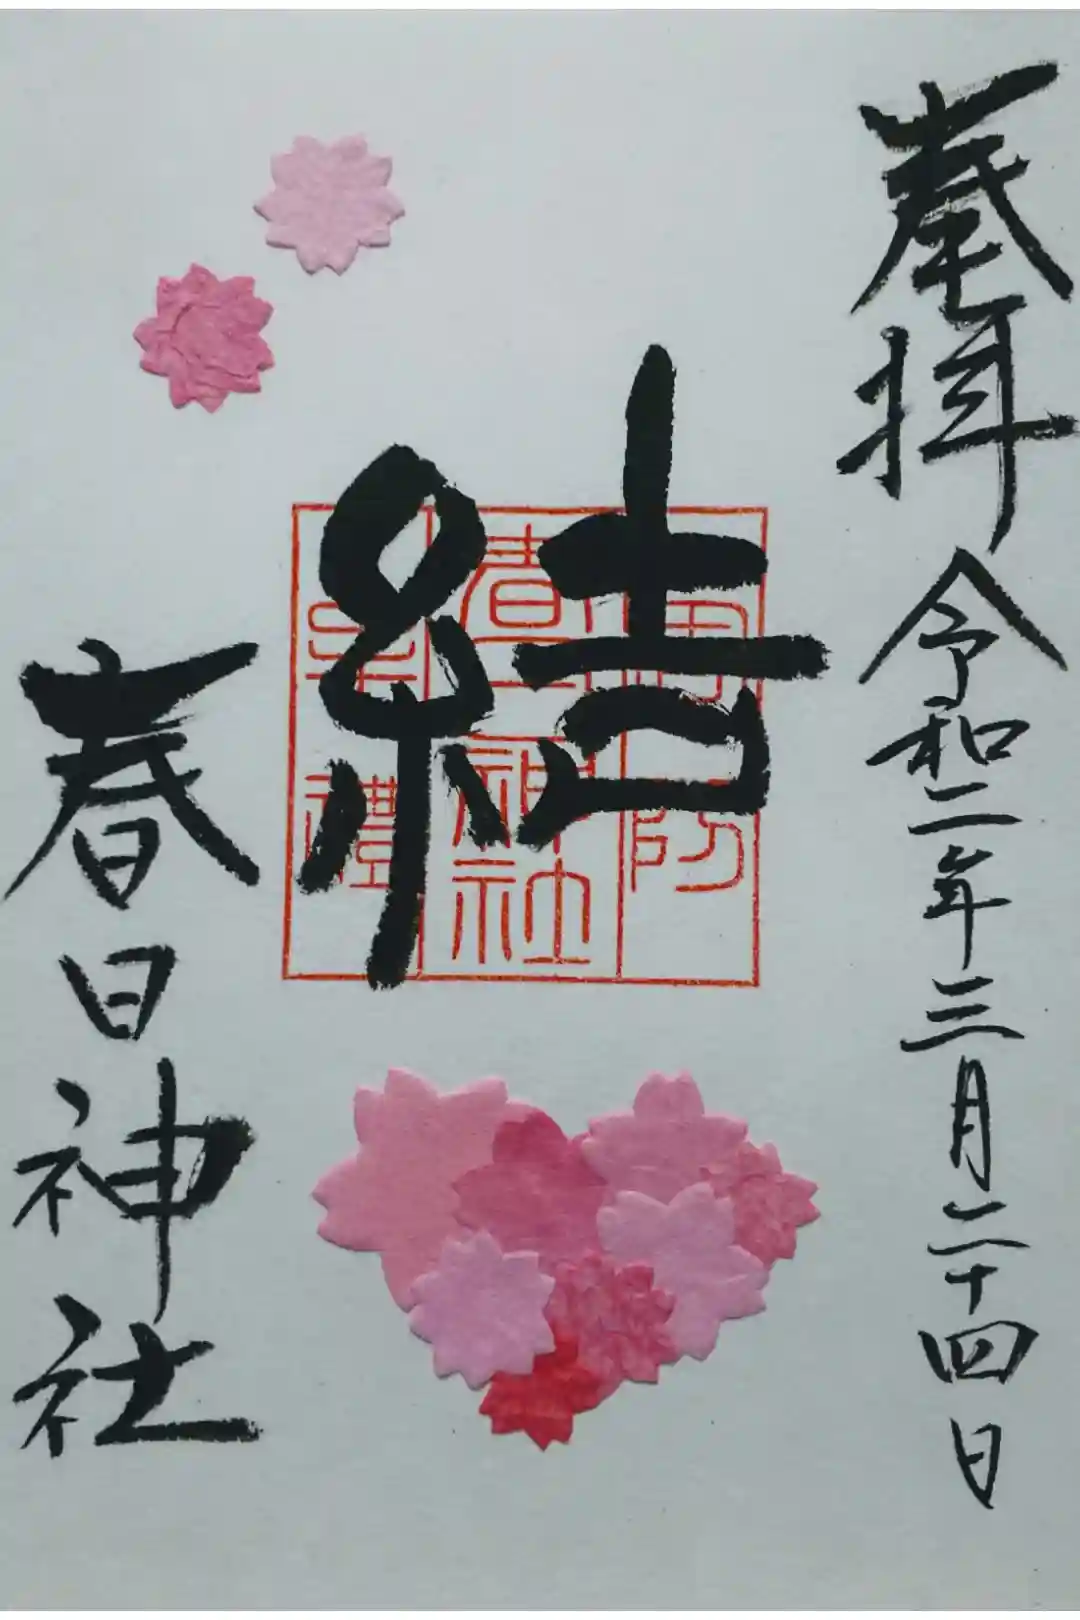 奉拝 令和二年三月二十四日
結
春日神社
春日神社